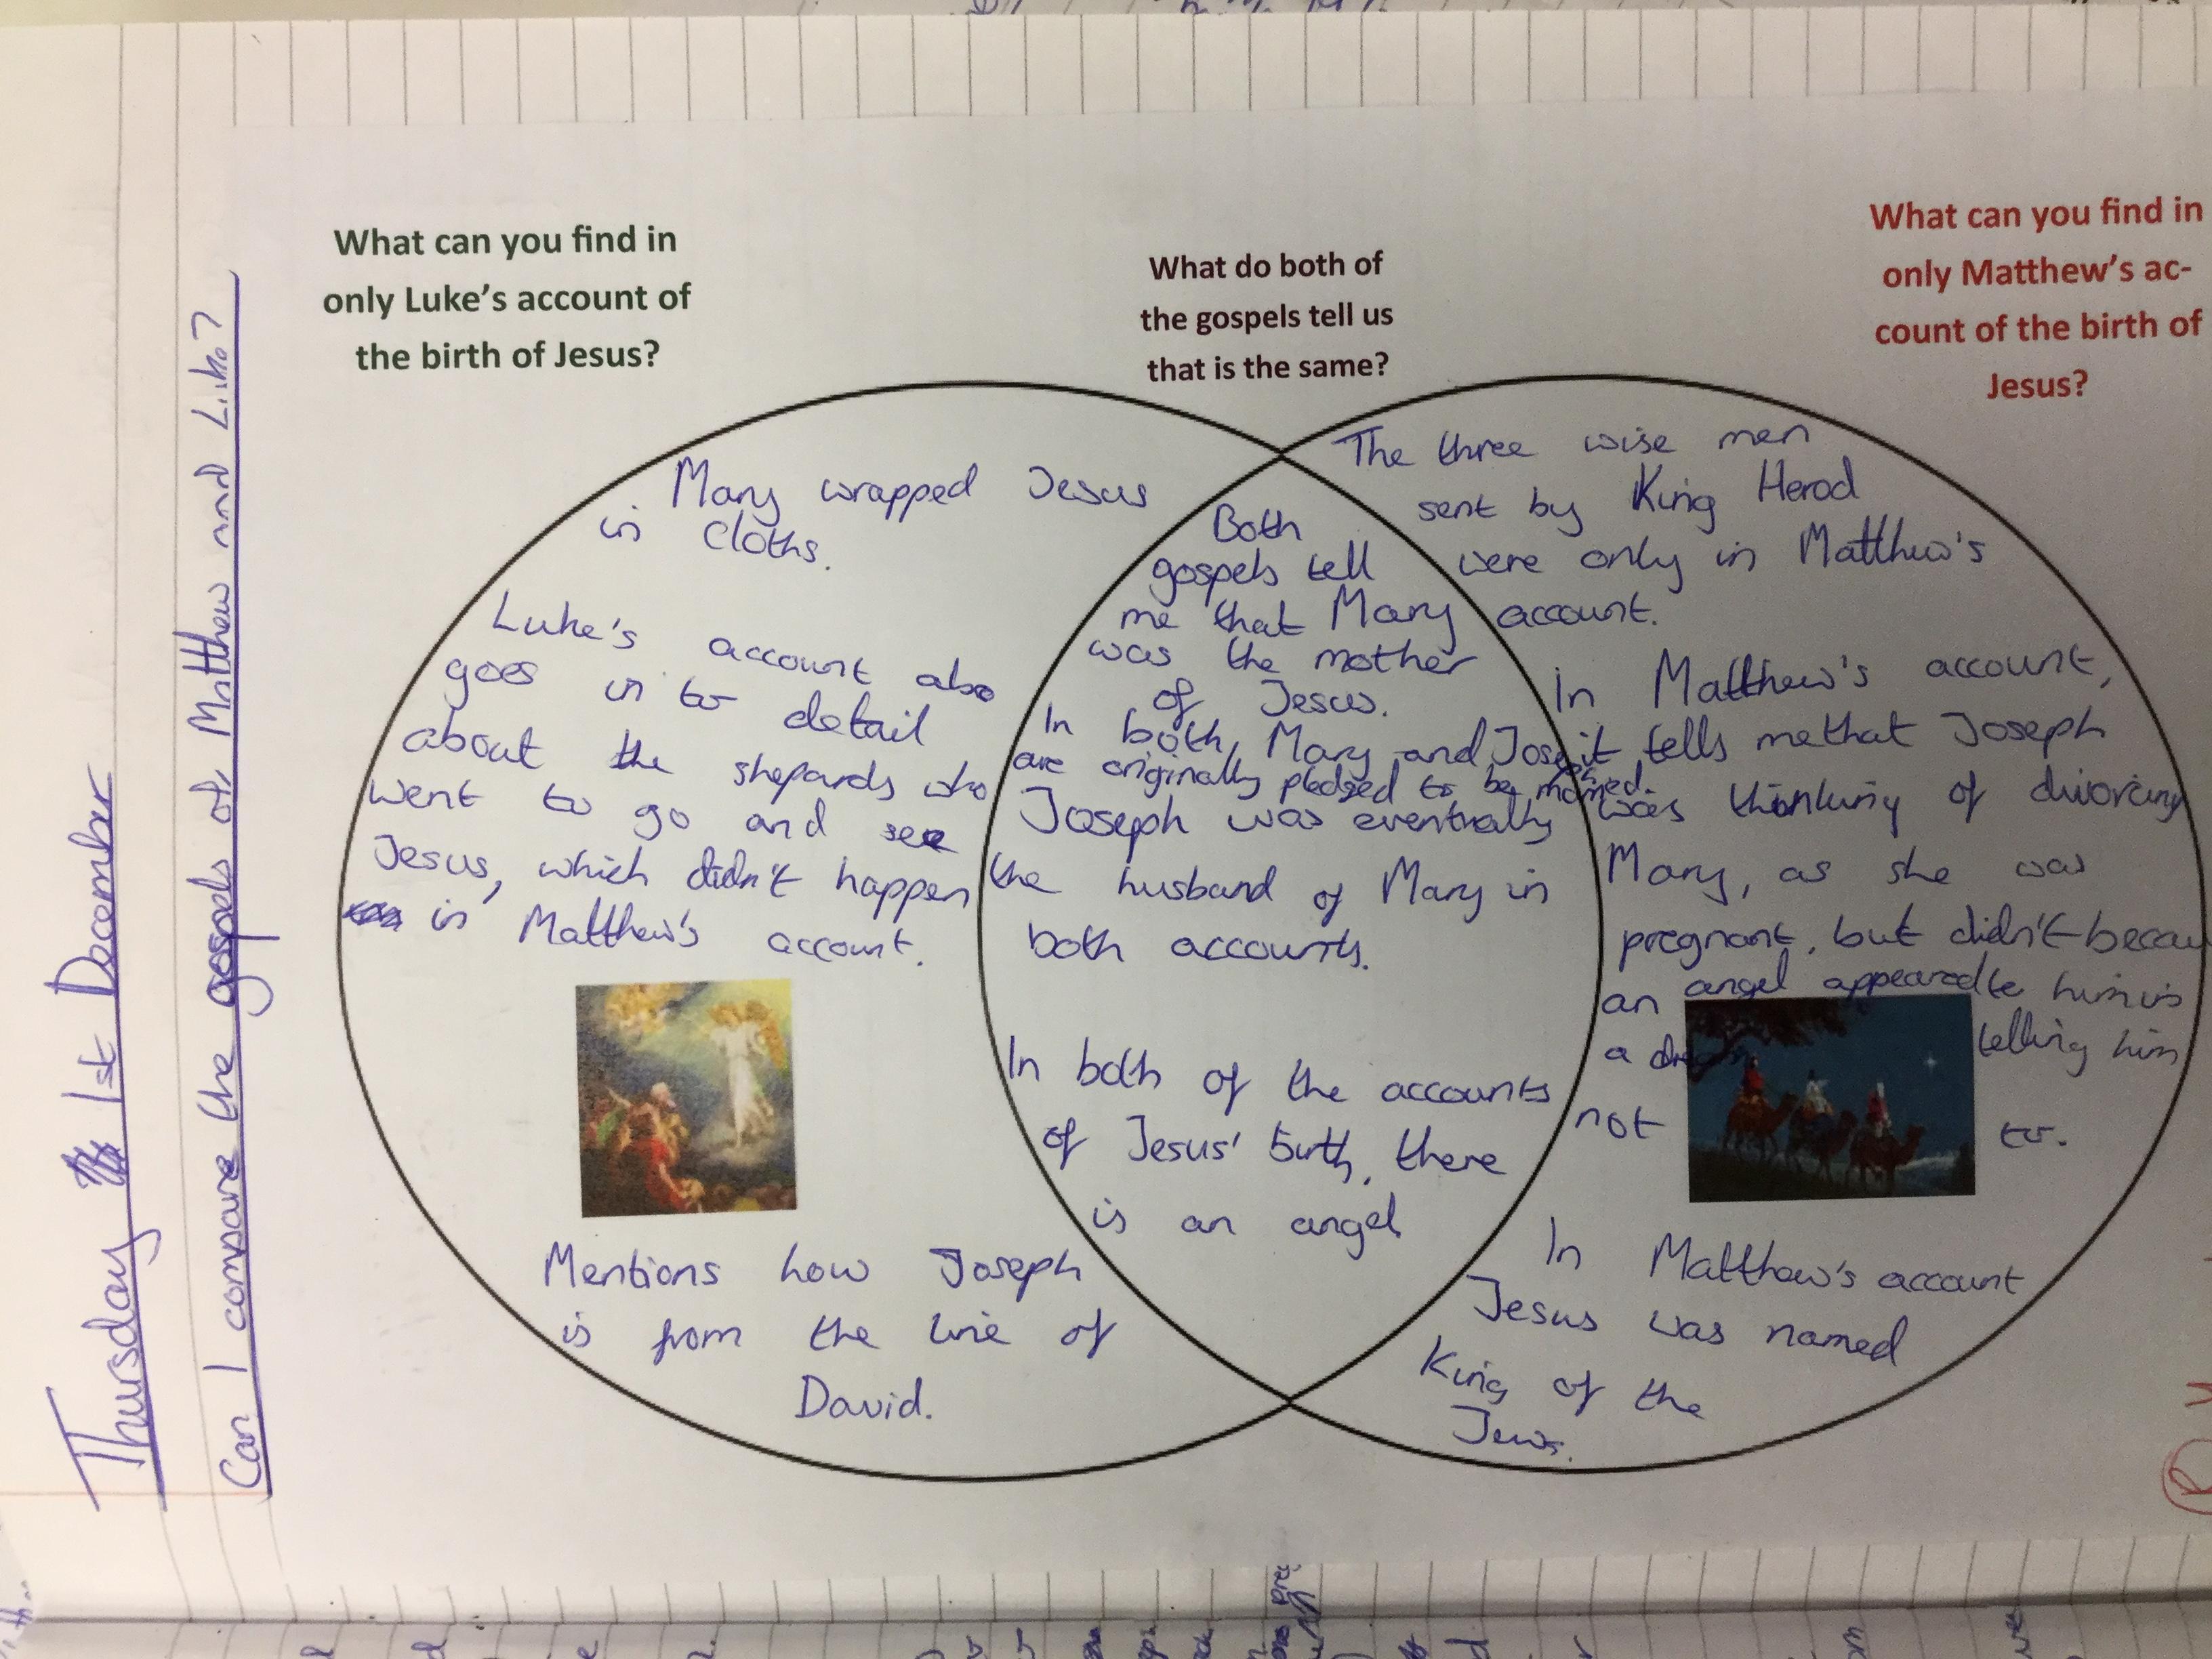 Thursday 1st December
Can I compare the gospels of Matthew and Like?
What can you find in
only Luke's account of
the birth of Jesus?
What do both of
the gospels tell us
that is the same?
What can you find in
only Matthew's ac-
count of the birth of
Jesus?
Mary wrapped Jesus
in cloths.
Luke's account also
goes in to detail
about the shepards who
went to go and see
Jesus, which didn't happen
in Matthew's account.
Mentions how Joseph
is from the line of
David.
Both
gospels tell
me that Mary
was the mother
of Jesus.
In both, Mary and Joseph
are originally pledged to be married.
Joseph was eventually
the husband of Mary in
both accounts.
In both of the accounts
of Jesus' birth, there
is an angel
The three wise men
sent by King Herod
were only in Matthew's
account.
In Matthew's account,
it tells me that Joseph
was thinking of divorcing
Mary, as she was
pregnant, but didn't becau
an angel appeared to him in
a dream telling him
not to.
In Matthew's account
Jesus was named
King of the
Jews.